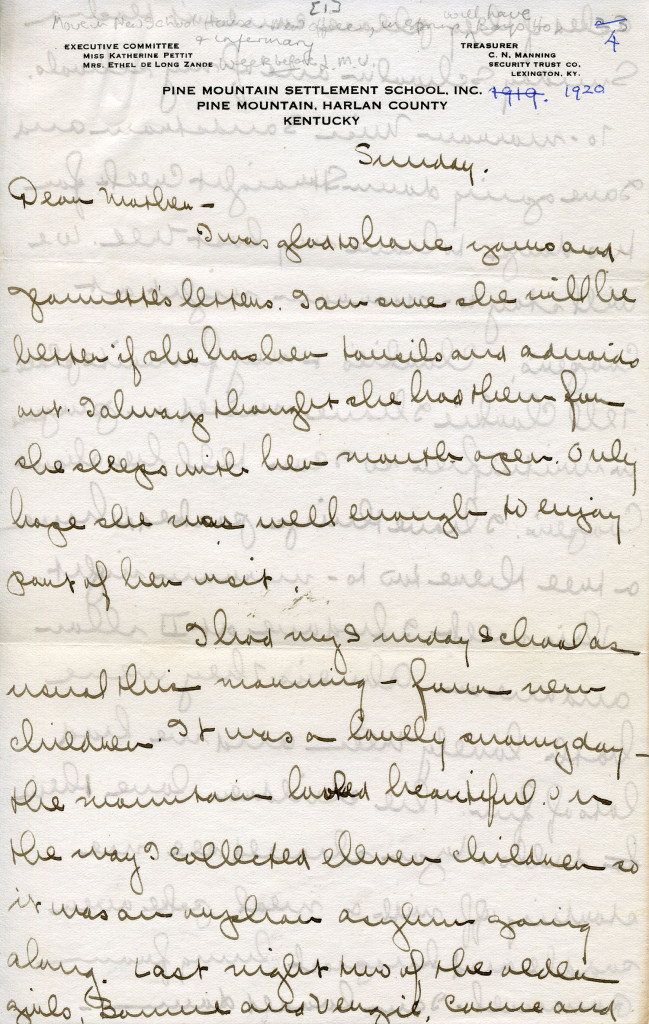 [1]
Move in New School House
will have
Boys Ho
& infirmary
2/4
EXECUTIVE COMMITTEE
MISS KATHERINE PETTIT
MRS. ETHEL DE LONG ZANDE
TREASURER
C. N. MANNING
SECURITY TRUST CO.
LEXINGTON, KY.
PINE MOUNTAIN SETTLEMENT SCHOOL, INC.
PINE MOUNTAIN, HARLAN COUNTY
KENTUCKY
1919. 1920
Sunday.
Dear Mother –
I was glad to have yours and
Jeannette's letters. I am sure she will be
better if she has her tonsils and adnoids
out. I always thought she had them for
she sleeps with her mouth open. Only
hope she was well enough to enjoy
part of her visit.
I had my Sunday School as
usual this morning – four new
children. It was a lovely snowy day –
the mountain looked beautiful. On
the way I collected eleven children so
it was an orphan asylum going
along. Last night two of the older
girls, Bonnie and Vengie, came and